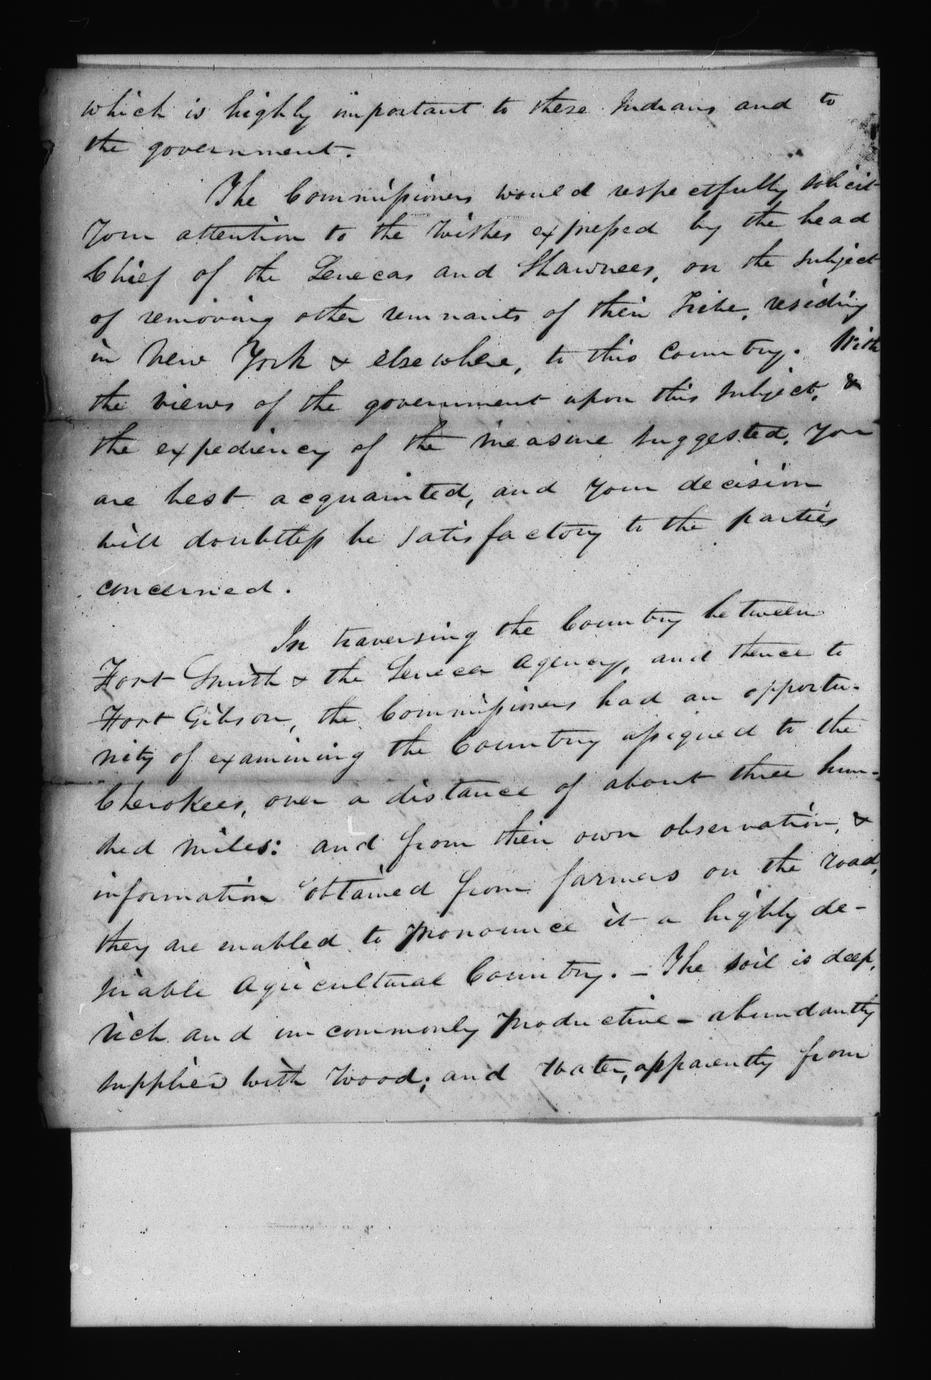 which is highly important to these Indians and to
the government.
The Commissioners would respectfully solicit
your attention to the wishes expressed by the head
Chief of the Senecas and Shawnees, on the subject
of removing other remnants of their Tribe, residing
in New York & elsewhere, to this country. With
the views of the government upon this subject, &
the expediency of the measure suggested, you
are best acquainted, and your decision
will doubtless be satisfactory to the parties
concerned.
In traversing the Country between
Fort Smith & the Seneca Agency, and thence to
Fort Gibson, the Commissioners had an opportu-
nity of examining the Country assigned to the
Cherokees, over a distance of about three hun-
dred miles: and from their own observation, &
information obtained from farmers on the road,
they are enabled to pronounce it a highly de-
sirable Agricultural Country. – The soil is deep,
rich and uncommonly productive – abundantly
supplied with wood; and water, apparently from